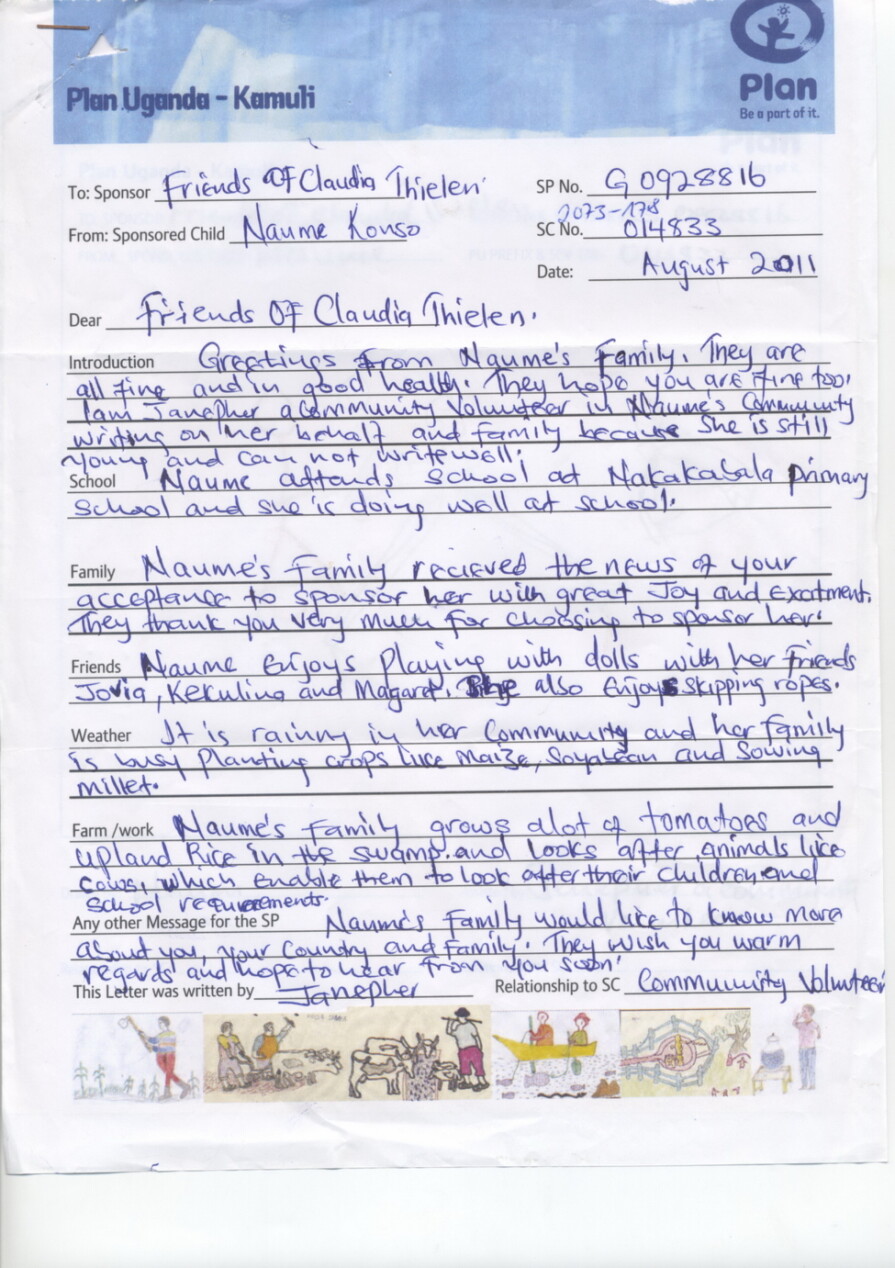 Plan Uganda - Kamuli
Plan
Be a part of it.
To: Sponsor Friends OF Claudia Thielen
SP No. G 0928816
From: Sponsored Child Naume Konso
2073-178
SC No. 014833
Date: August 2011
Dear Friends OF Claudia Thielen.
Introduction Greetings from Naume's Family. They are
all fine and in good health. They hope you are fine too.
I am Janepher a Community Volunteer in Naume's Community
writing on her behalf and family because She is still
young and can not write well.
School Naume attends School at Nakakabala Primary
School and she is doing well at school.
Family Naume's Family recieved the news of your
acceptance to sponsor her with great Joy and Excitment.
They thank you very much for choosing to sponsor her.
Friends Naume Enjoys Playing with dolls with her friends
Jovia, Kekulina and Magaret. She also Enjoys Skipping ropes.
Weather It is rainny in her Community and her family
is busy Planting crops like Maize, Soyabean and Sowing
millet.
Farm /work Naume's Family grows alot of tomatoes and
upland Rice in the swamp and looks after animals like
cows, which enable them to look after their children and
School requirements.
Any other Message for the SP Naume's Family would like to know more
about you, your Country and Family. They wish you warm
regards and hope to hear from you soon!
This Letter was written by Janepher
Relationship to SC Community Volunteer